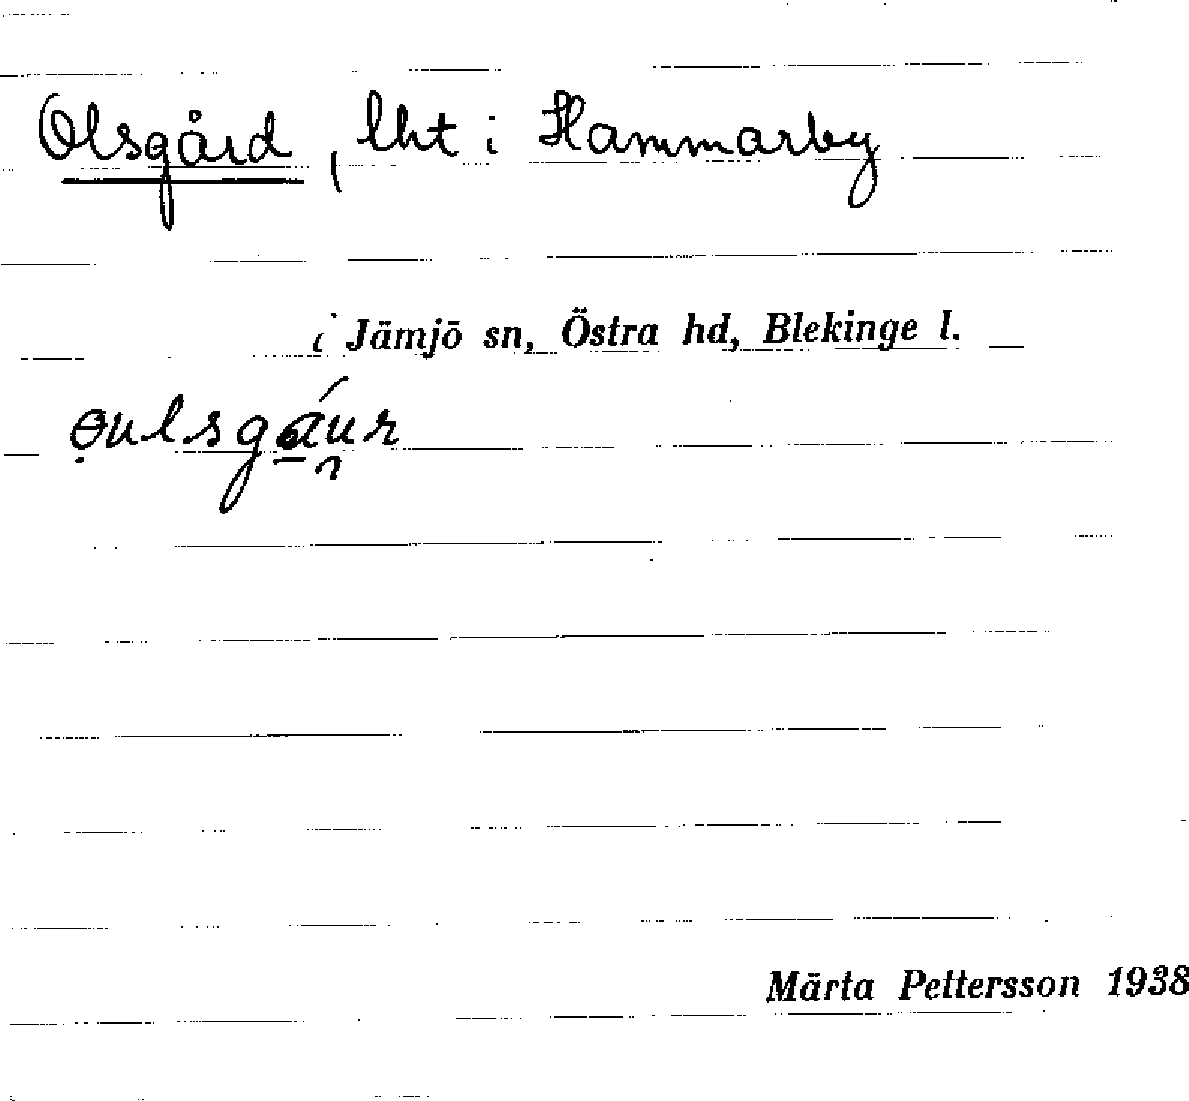 Olsgård, lht i Hammarby
i Jämjö sn, Östra hd, Blekinge l.
Märta Pettersson 1938